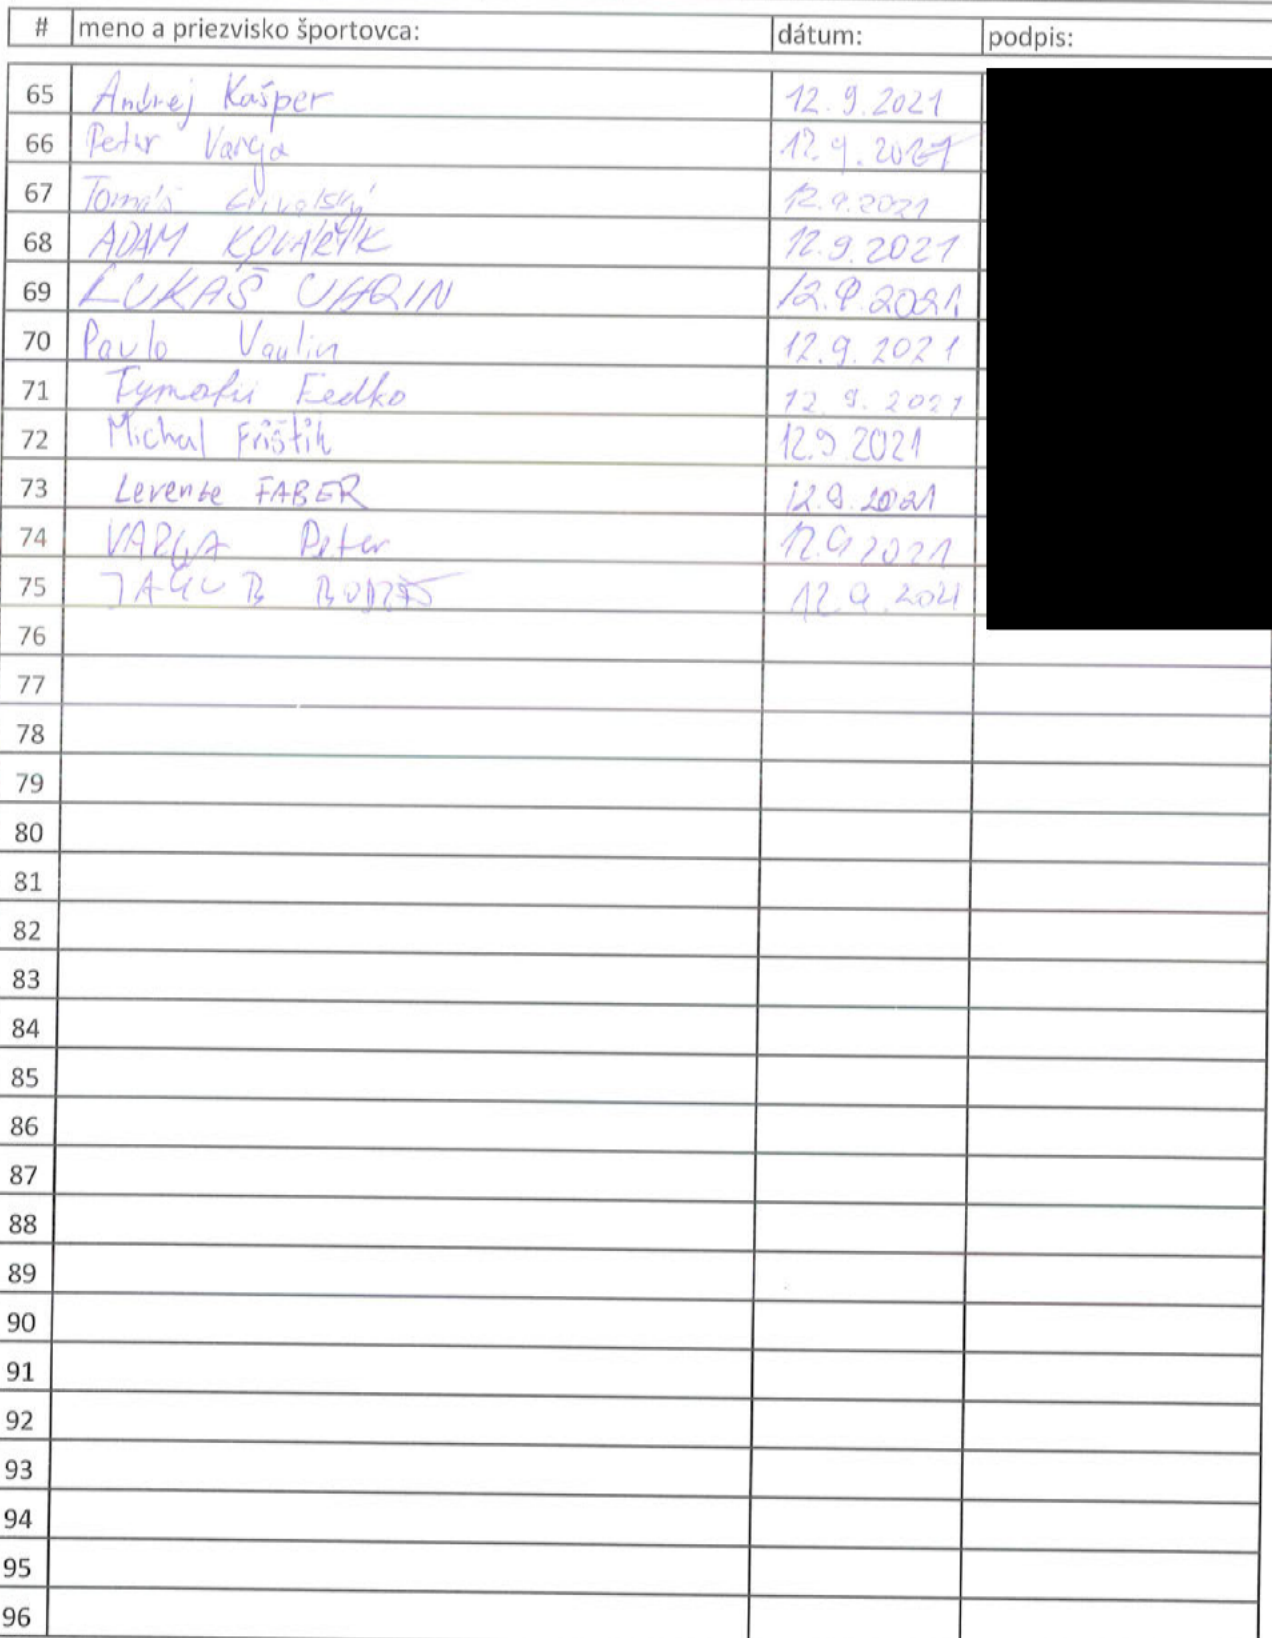 # meno a priezvisko športovca: dátum: podpis:
65 Andrej Kašper 12.9.2021
66 Peter Varga 12.9.2021
67 Tomáš 12.9.2021
68 ADAM KOVARČÍK 12.9.2021
69 LUKÁŠ UHRIN 12.9.2021
70 Pavlo Vaulin 12.9.2021
71 Tymofii Fedko 12.9.2021
72 Michal Frištik 12.9.2021
73 Levente FABER 12.9.2021
74 VARGA Peter 12.9.2021
75 12.9.2021
76
77
78
79
80
81
82
83
84
85
86
87
88
89
90
91
92
93
94
95
96